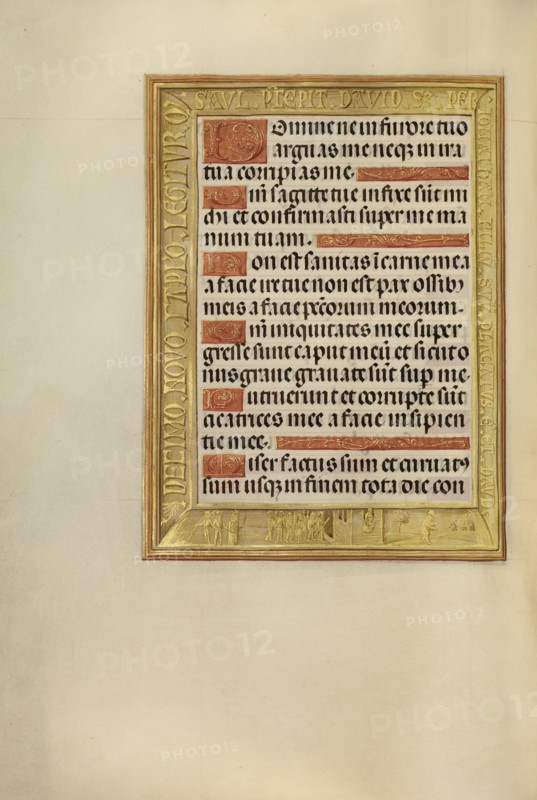 SAVL
DAVID
Domine ne in furore tuo
arguas me neqȝ in ira
tua corripias me.
Qm̄ sagitte tue infixe sūt mi
chi et confirmasti super me ma
num tuam.
Non est sanitas ī carne mea
a facie ire tue non est pax ossibȝ
meis a facie pc̄corum meorum.
Qm̄ iniquitates mee super
gresse sunt caput meū et sicut o
nus graue grauate sūt sup̄ me.
Putruerunt et corrupte sūt
cicatrices mee a facie insipien
tie mee.
Miser factus sum et curuatꝰ
sum usqȝ in finem tota die con
PHOTO12